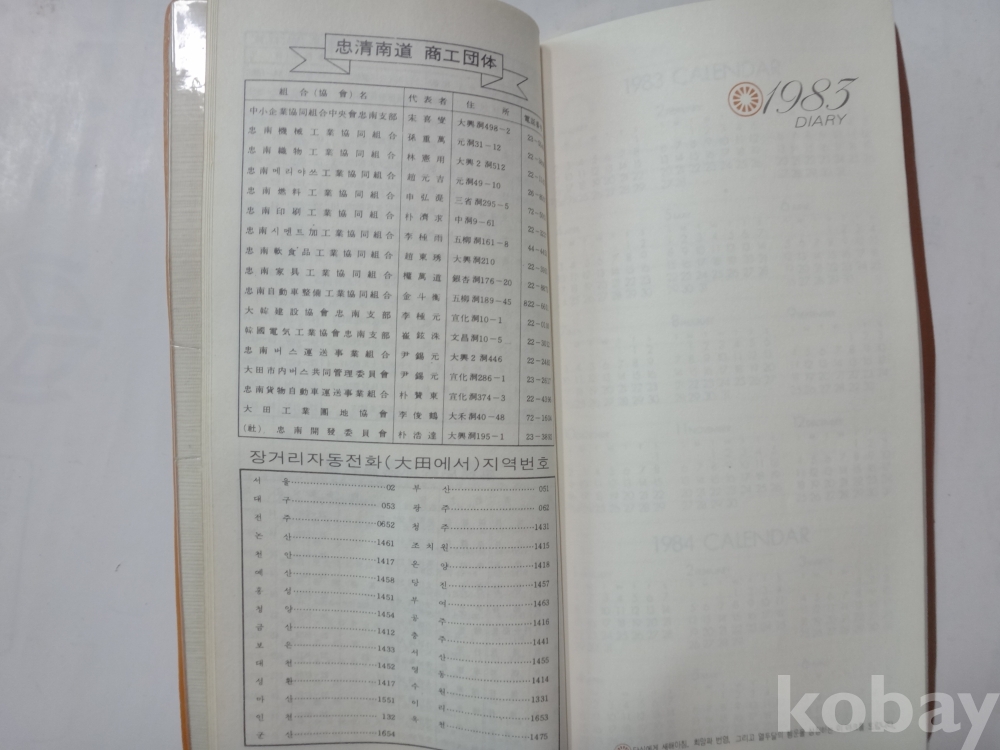 忠清南道 商工団体
組合(協會)名 代表者 住所
中小企業協同組合中央會忠南支部 宋喜燮 大興洞498-2
忠南機械工業協同組合 孫重萬 元洞31-12
忠南織物工業協同組合 林憲用 大興2洞512
忠南메리야쓰工業協同組合 趙元吉 元洞49-10
忠南燃料工業協同組合 申弘湜 三省洞295-5
忠南印刷工業協同組合 朴濟求 中洞9-61
忠南시멘트加工業協同組合 李極雨 五柳洞161-8
忠南軟食品工業協同組合 趙東琇 大興洞210
忠南家具工業協同組合 權萬道 銀杏洞176-20
忠南自動車整備工業協同組合 金斗衡 五柳洞189-45
大韓建設協會忠南支部 李極元 宣化洞10-1
韓國電気工業協會忠南支部 崔鉉洙 文昌洞10-5
忠南버스運送事業組合 尹錫元 大興2洞446
大田市内버스共同管理委員會 尹錫元 宣化洞286-1
忠南貨物自動車運送事業組合 朴贊東 宣化洞374-3
大田工業團地協會 李俊鶴 大禾洞40-48
(社) 忠南開發委員會 朴浩達 大興洞195-1
장거리자동전화(大田에서)지역번호
서울 02 부산 051
대구 053 광주 062
전주 0652 청주 1431
논산 1461 조치원 1415
천안 1417 온양 1418
예산 1458 당진 1457
홍성 1451 부여 1463
청양 1454 공주 1416
금산 1412 충주 1441
보은 1433 서산 1455
대천 1452 영동 1414
성환 1417 수원 1331
아산 1551 이리 1653
인천 132 옥천 1475
군산 1654
1983
DIARY
1983 CALENDAR
1984 CALENDAR
kobay